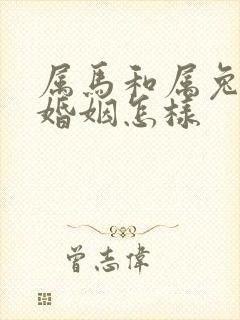 属馬和属兔
婚姻怎樣
曾志偉